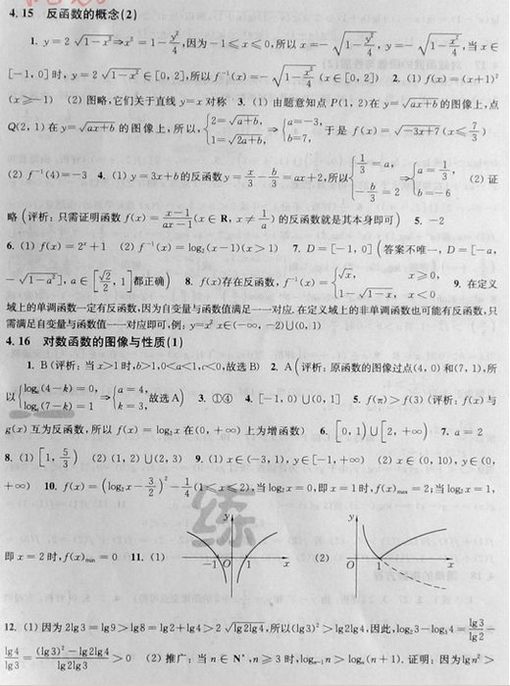 4.15 反函数的概念(2)
1. y=2√(1-x²)⇒x²=1-y²/4,因为-1≤x≤0,所以x=-√(1-y²/4), y=-√(1-x²/4),当x∈
[-1,0]时,y=2√(1-x²)∈[0,2],所以f⁻¹(x)=-√(1-x²/4) (x∈[0,2]) 2. (1) f(x)=(x+1)²
(x≥-1) (2) 图略,它们关于直线y=x对称 3. (1) 由题意知点P(1,2)在y=√(ax+b)的图像上,点
Q(2,1)在y=√(ax+b)的图像上,所以,{2=√(a+b), 1=√(2a+b), ⇒{a=-3, b=7, 于是f(x)=√(-3x+7)(x≤7/3)
(2) f⁻¹(4)=-3 4. (1) y=3x+b的反函数y=x/3-b/3=ax+2,所以{1/3=a, -b/3=2 ⇒{a=1/3, b=-6 (2) 证
略(评析:只需证明函数f(x)=(x-1)/(ax-1)(x∈R,x≠1/a)的反函数就是其本身即可) 5. -2
6. (1) f(x)=2ˣ+1 (2) f⁻¹(x)=log₂(x-1)(x>1) 7. D=[-1,0](答案不唯一,D=[-a,
-√(1-a²)],a∈[√2/2,1]都正确) 8. f(x)存在反函数,f⁻¹(x)={√x, x≥0, 1-√(1-x), x<0 9. 在定义
域上的单调函数一定有反函数,因为自变量与函数值满足一一对应.在定义域上的非单调函数也可能有反函数,只
需满足自变量与函数值一一对应即可,例:y=x² x∈(-∞,-2)∪(0,1)
4.16 对数函数的图像与性质(1)
1. B(评析:当x>1时,b>1,0<a<1,c<0,故选B) 2. A(评析:原函数的图像过点(4,0)和(7,1),所
以{logₐ(4-k)=0, logₐ(7-k)=1 ⇒{a=4, k=3, 故选A) 3. ①④ 4. [-1,0)∪(0,1] 5. f(π)>f(3)(评析:f(x)与
g(x)互为反函数,所以f(x)=log₃x在(0,+∞)上为增函数) 6. [0,1)∪[2,+∞) 7. a=2
8. (1) [1,5/3) (2) (1,2)∪(2,3) 9. (1) x∈(-3,1),y∈[-1,+∞) (2) x∈(0,10),y∈(0,
+∞) 10. f(x)=(log₂x-3/2)²-1/4(1≤x≤2),当log₂x=0,即x=1时,f(x)max=2;当log₂x=1,
即x=2时,f(x)min=0 11. (1) y -1 O 1 x (2) y O 1 x
练
12. (1) 因为2lg3=lg9>lg8=lg2+lg4>2√(lg2lg4),所以(lg3)²>lg2lg4,因此,log₂3-log₃4=lg3/lg2-
lg4/lg3=((lg3)²-lg2lg4)/(lg2lg3)>0 (2) 推广:当n∈N*,n≥3时,logₙ₋₁n>logₙ(n+1).证明:因为lgn²>